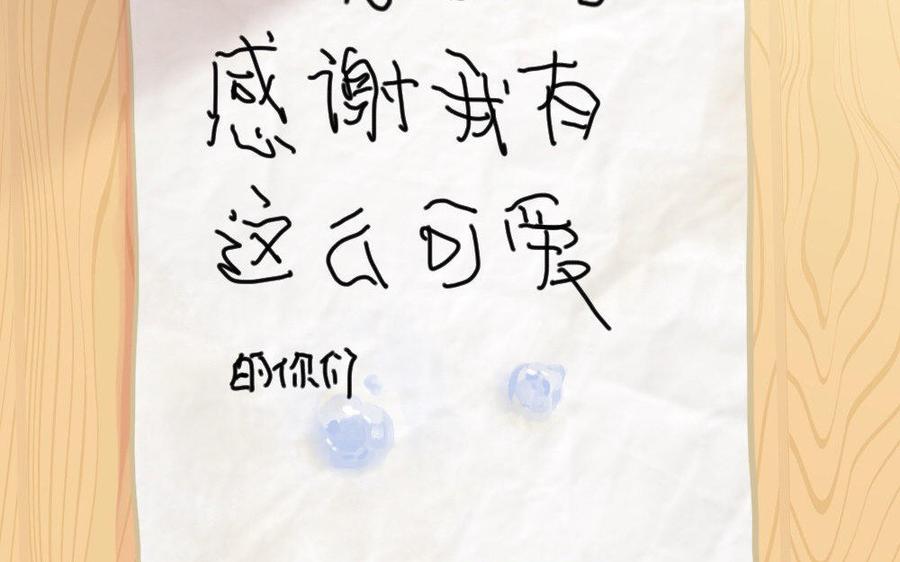 感谢我有
这么可爱
的你们